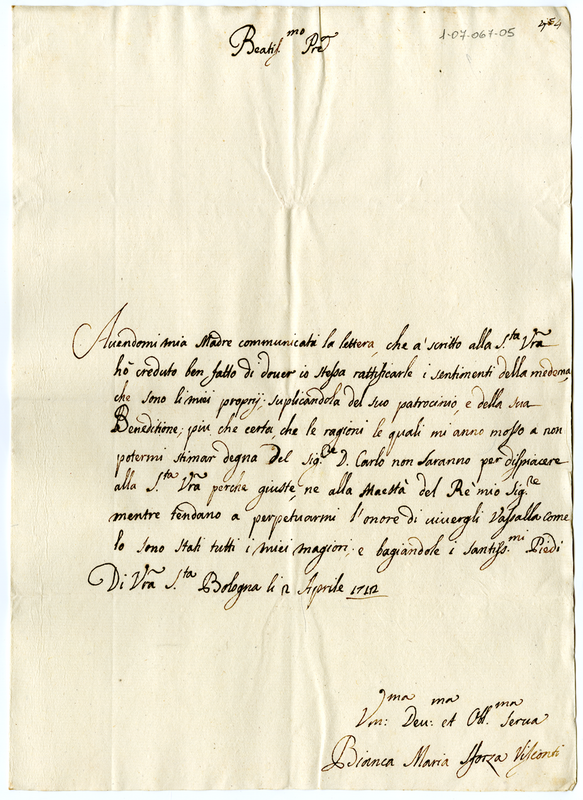 1-07.067-05
Beatiss.mo Pre
Auendomi mia Madre communicata la lettera, che a' scritto alla S.ta Vra
hò creduto ben fatto di douer io stessa rattificarle i sentimenti della medema,
che sono li miei proprij; suplicandola del suo patrocinio, e della sua
Beneditione; più che certa, che le ragioni le quali mi anno mosso a non
potermi stimar degna del Sig.re D. Carlo non saranno per dispiacere
alla S.ta Vra perche giuste, ne alla Maestà del Rè mio Sig.re
mentre tendano a perpetuarmi l'onore di viuergli Vassalla come
lo sono stati tutti i miei magiori, e bagiandole i santiss.mi Piedi
Di Vra S.ta Bologna li 2 Aprile 1712
Vm:ma Deu:ma et Obl.ma serua
Bianca Maria Sforza Visconti